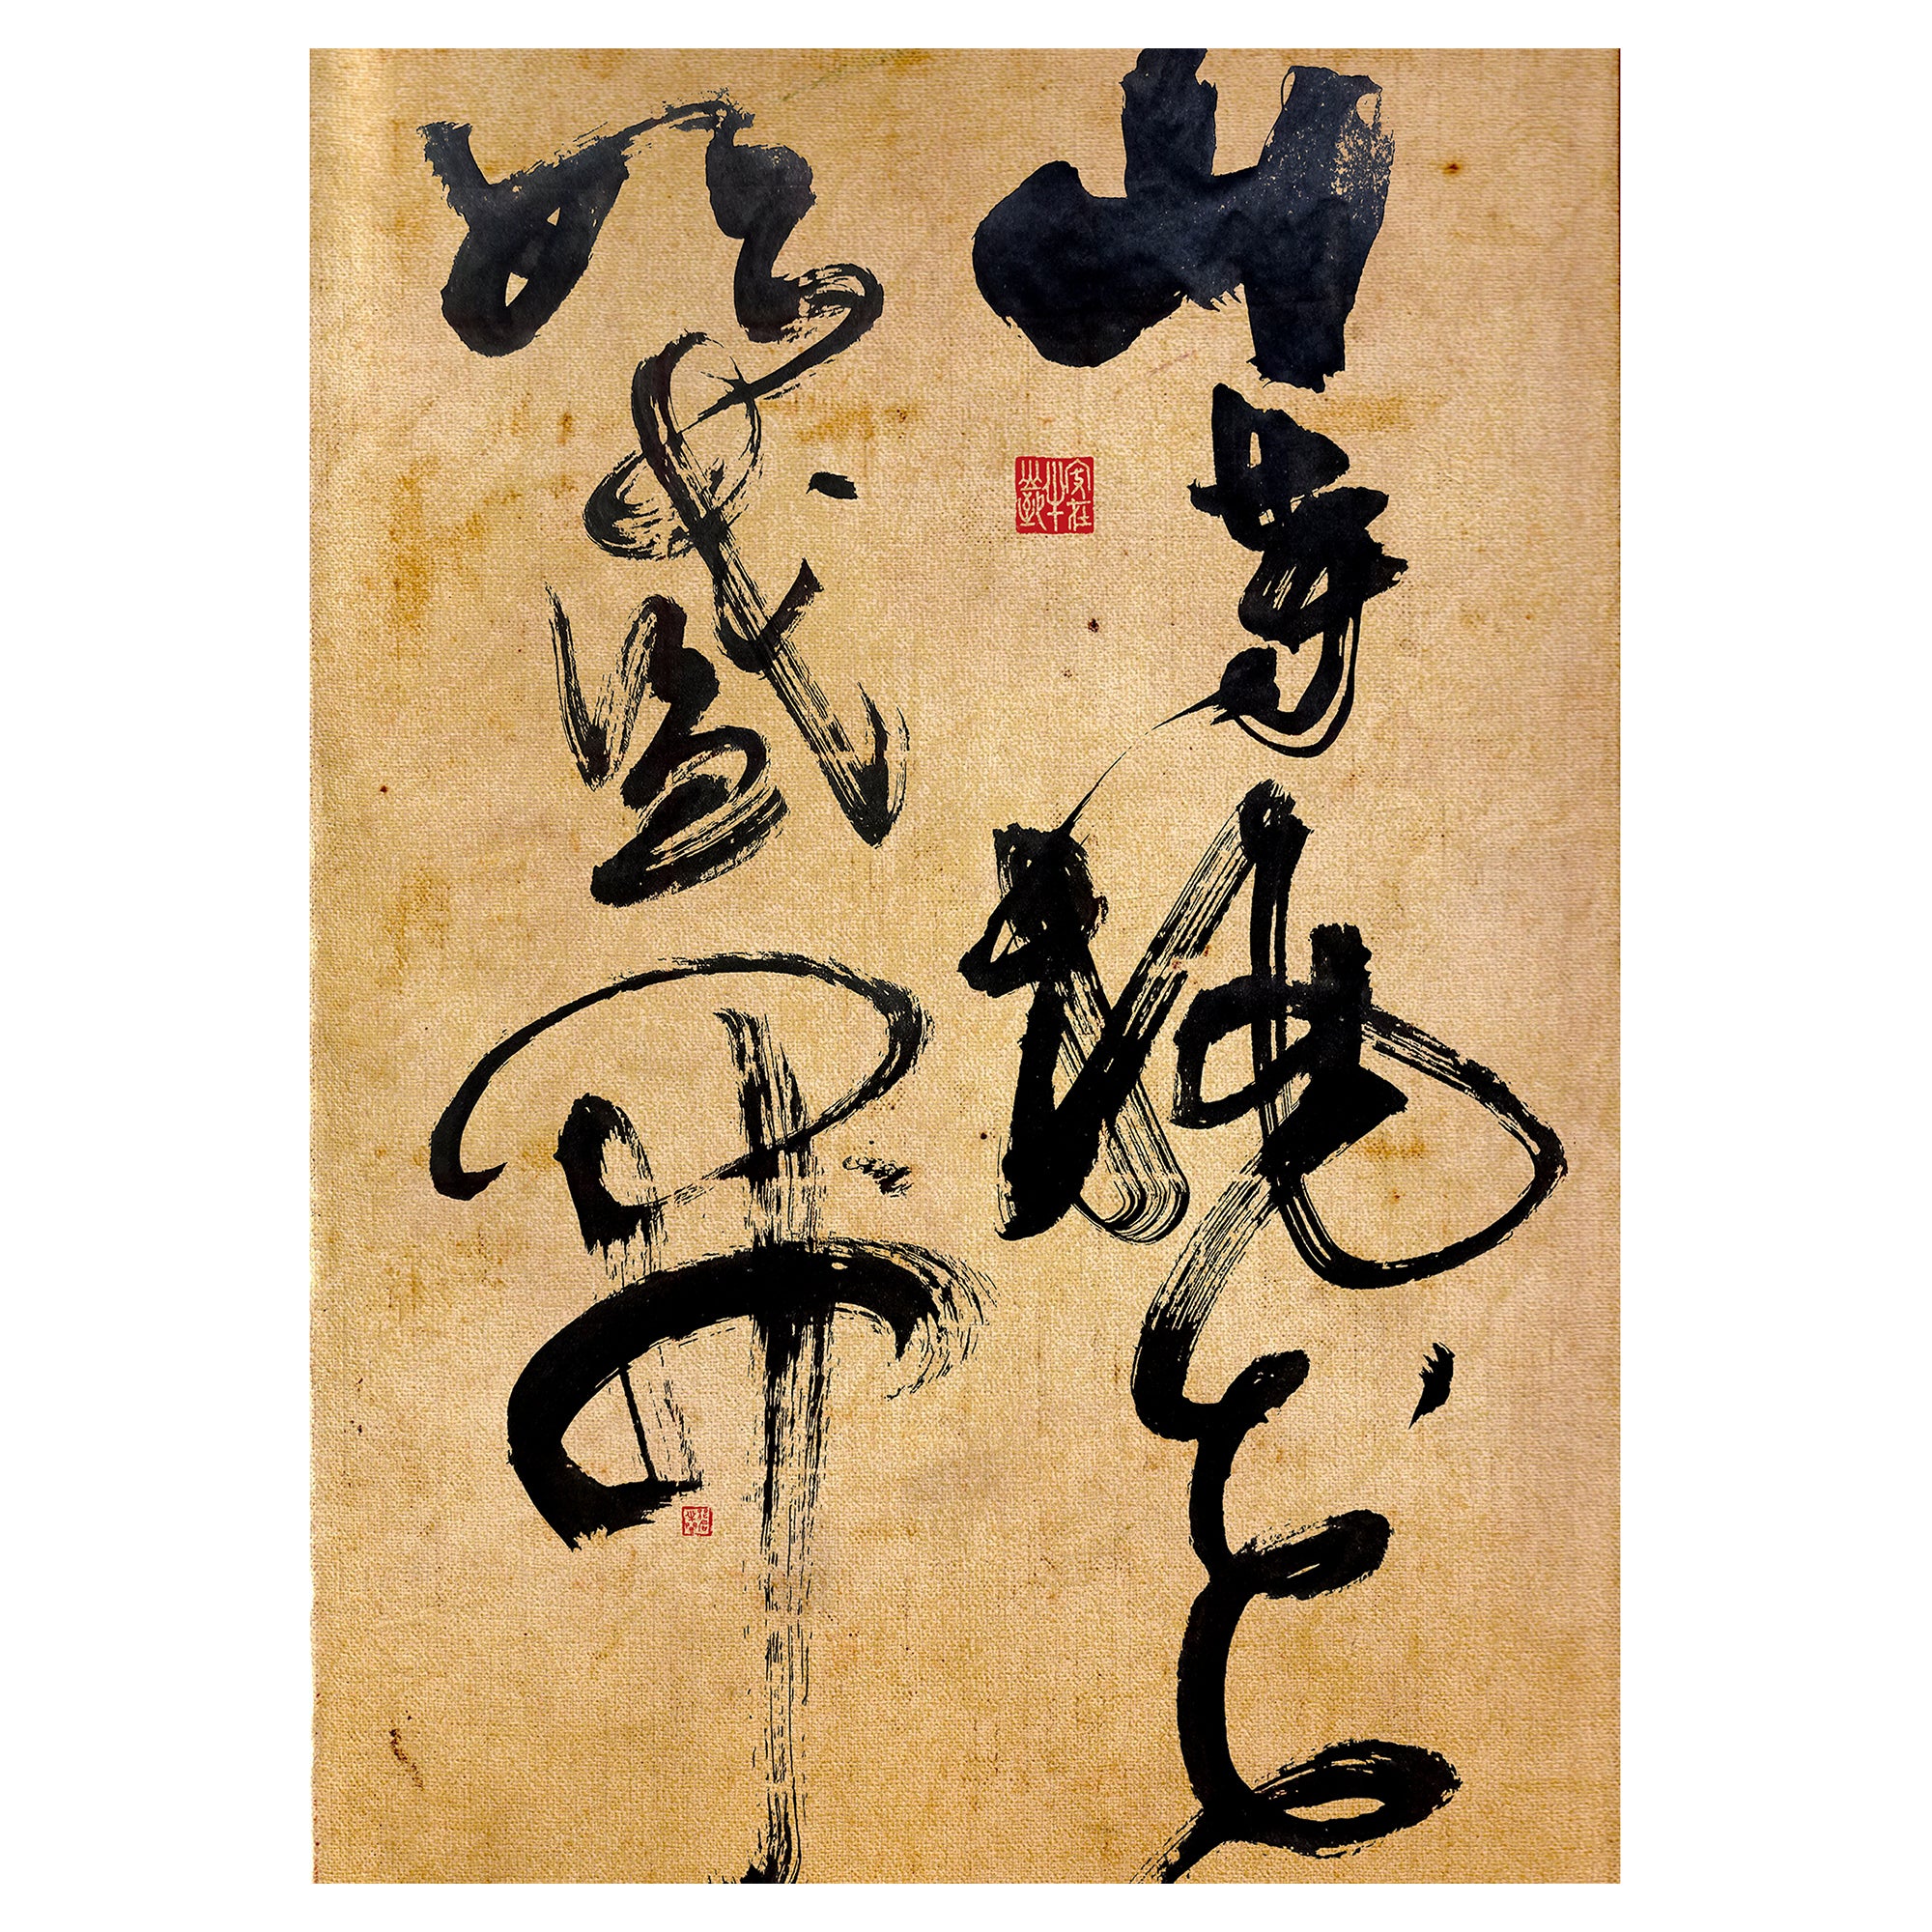 山寺桃花
始盛開